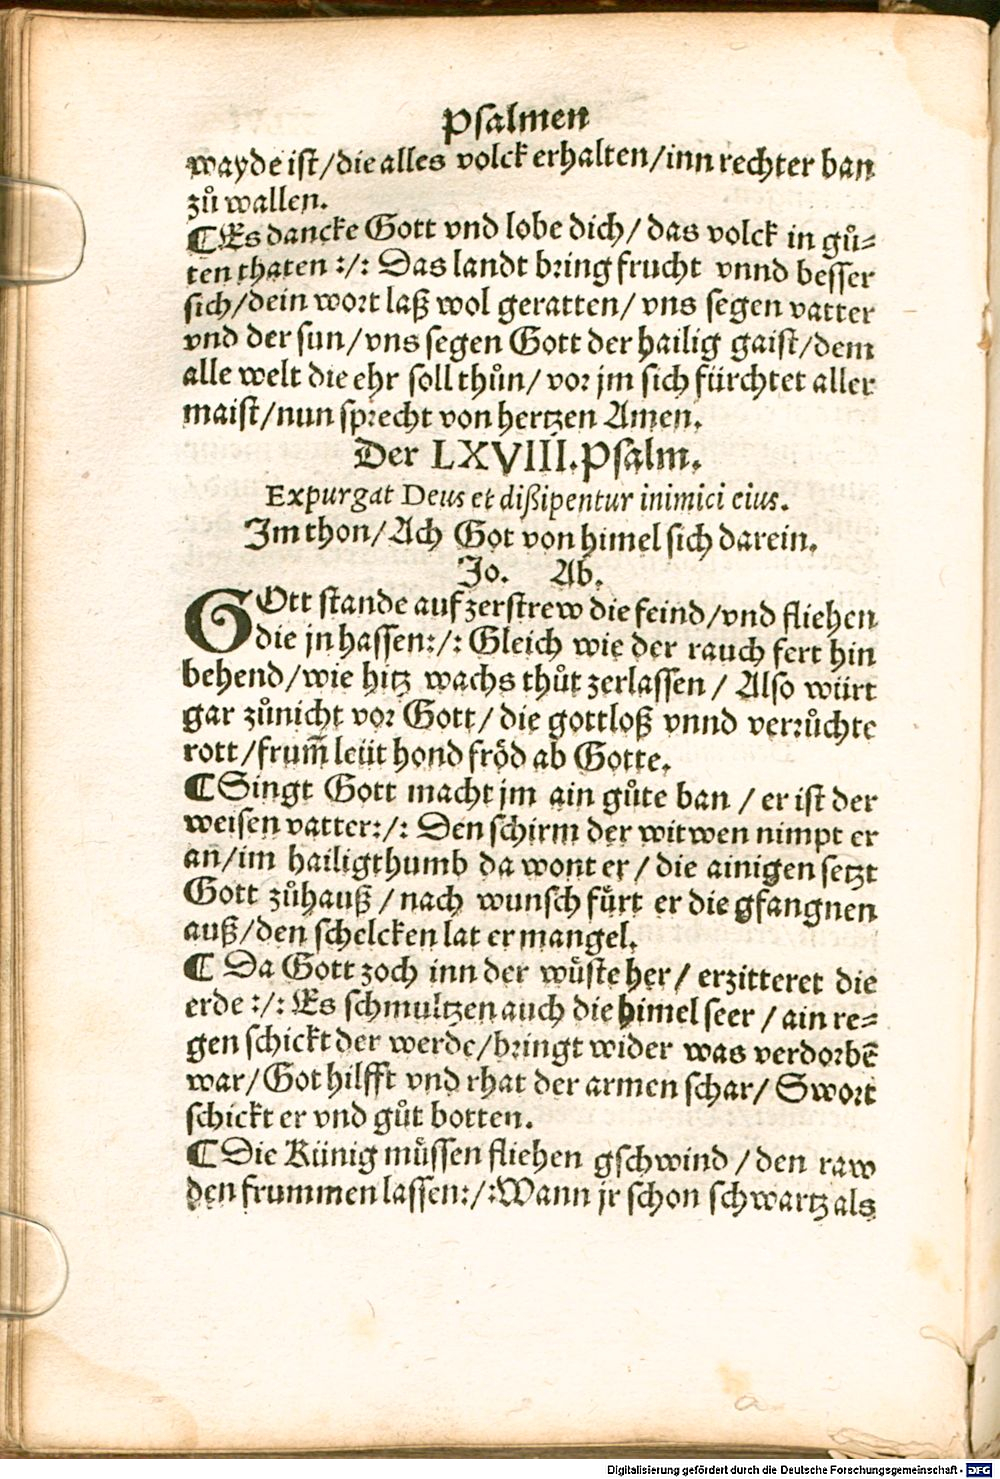 Psalmen
wayde ist/die alles volck erhalten/inn rechter ban
zů wallen.
¶Es dancke Gott vnd lobe dich/ das volck in gů⸗
ten thaten :/: Das landt bring frucht vnnd besser
sich/dein wort laß wol geratten/ vns segen vatter
vnd der sun/vns segen Gott der hailig gaist/dem
alle welt die ehr soll thůn/ vor jm sich fürchtet aller
maist/nun sprecht von hertzen Amen.
Der LXVIII.Psalm.
Expurgat Deus et dißipentur inimici eius.
Im thon/Ach Got von himel sich darein.
Jo. Ab.
GOtt stande auf zerstrew die feind/vnd fliehen
die jn hassen:/: Gleich wie der rauch fert hin
behend/wie hitz wachs thůt zerlassen/ Also würt
gar zůnicht vor Gott/ die gottloß vnnd verrůchte
rott/frum̃ leüt hond fröd ab Gotte.
¶Singt Gott macht jm ain gůte ban / er ist der
weisen vatter:/: Den schirm der witwen nimpt er
an/im hailigthumb da wont er/ die ainigen setzt
Gott zůhauß /nach wunsch fürt er die gfangnen
auß/den schelcken lat er mangel.
¶ Da Gott zoch inn der wüste her/ erzitteret die
erde :/: Es schmultzen auch die himel seer /ain re⸗
gen schickt der werde/bringt wider was verdorbē
war/Got hilfft vnd rhat der armen schar/ Swort
schickt er vnd gůt botten.
¶Die Künig müssen fliehen gschwind /den raw
den frummen lassen:/:Wann jr schon schwartz als
Digitalisierung gefördert durch die Deutsche Forschungsgemeinschaft - DFG